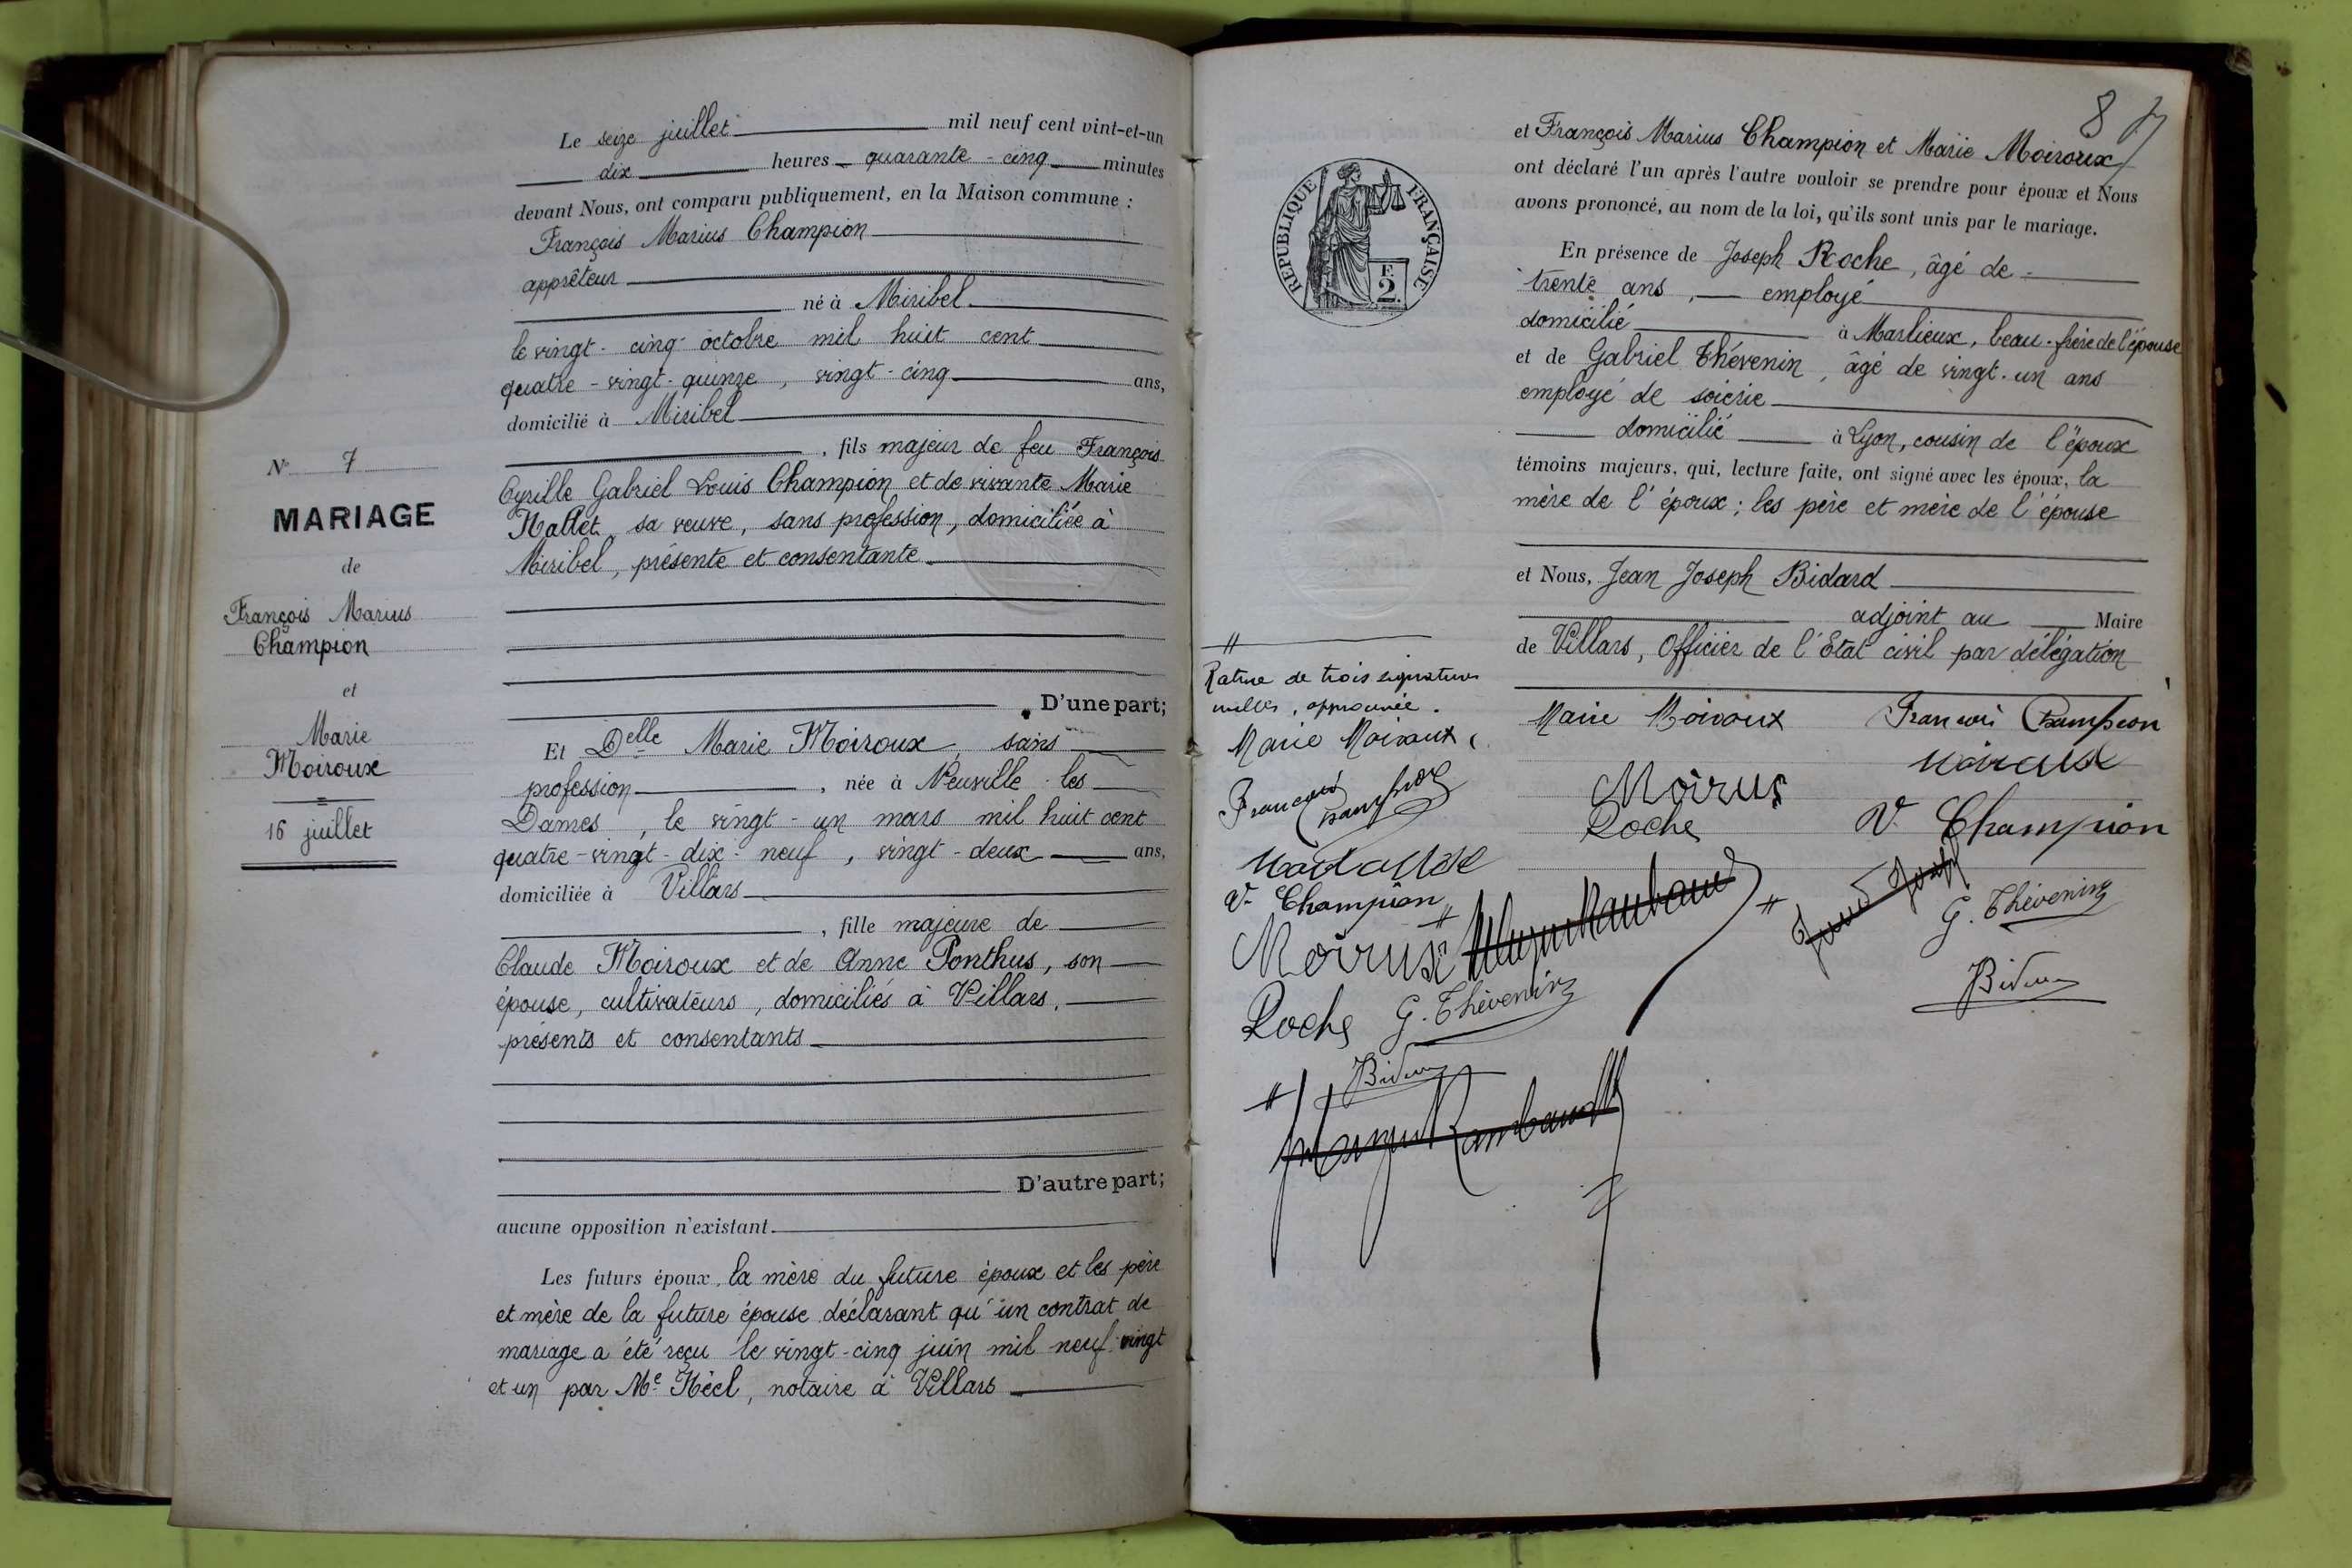 N° 7
MARIAGE
de
François Marius
Champion
et
Marie
Moiroux
16 juillet
Le seize juillet mil neuf cent vint-et-un
dix heures quarante-cinq minutes
devant Nous, ont comparu publiquement, en la Maison commune :
François Marius Champion
apprêteur
né à Miribel
le vingt-cinq octobre mil huit cent
quatre-vingt-quinze, vingt-cinq ans,
domicilié à Miribel
, fils majeur de feu François
Cyrille Gabriel Louis Champion et de vivante Marie
sa veuve, sans profession, domiciliée à
Miribel, présente et consentante
D'une part;
Et Delle Marie Moiroux, sans
profession, née à Neuville-les
Dames, le vingt-un mars mil huit cent
quatre-vingt-dix-neuf, vingt-deux ans,
domiciliée à Villars
, fille majeure de
Claude Moiroux et de Anne Ponthus, son
épouse, cultivateurs, domiciliés à Villars,
présents et consentants
D'autre part;
aucune opposition n'existant.
Les futurs époux, la mère du future époux et les père
et mère de la future épouse déclarant qu'un contrat de
mariage a été reçu le vingt-cinq juin mil neuf vingt
et un par Me notaire à Villars
8
et François Marius Champion et Marie Moiroux
ont déclaré l'un après l'autre vouloir se prendre pour époux et Nous
avons prononcé, au nom de la loi, qu'ils sont unis par le mariage.
En présence de Joseph Roche, âgé de
trente ans, employé
domicilié à Marlieux, beau-frère de l'épouse
et de Gabriel Thévenin, âgé de vingt-un ans
employé de soierie
domicilié à Lyon, cousin de l'époux
témoins majeurs, qui, lecture faite, ont signé avec les époux, la
mère de l'époux; les père et mère de l'épouse
et Nous, Jean Joseph Bidard
adjoint au Maire
de Villars, Officier de l'Etat civil par délégation
Marie Moiroux
François Champion
Moiroux
Moirux
Roche
V. Champion
G. Thévenin
Bidard
REPUBLIQUE FRANÇAISE
F.
2.
Rature de trois signatures
nulles, approuvée.
Marie Moiroux
François Champion
V. Champion
Moirux
Roche
G. Thévenin
Bidard